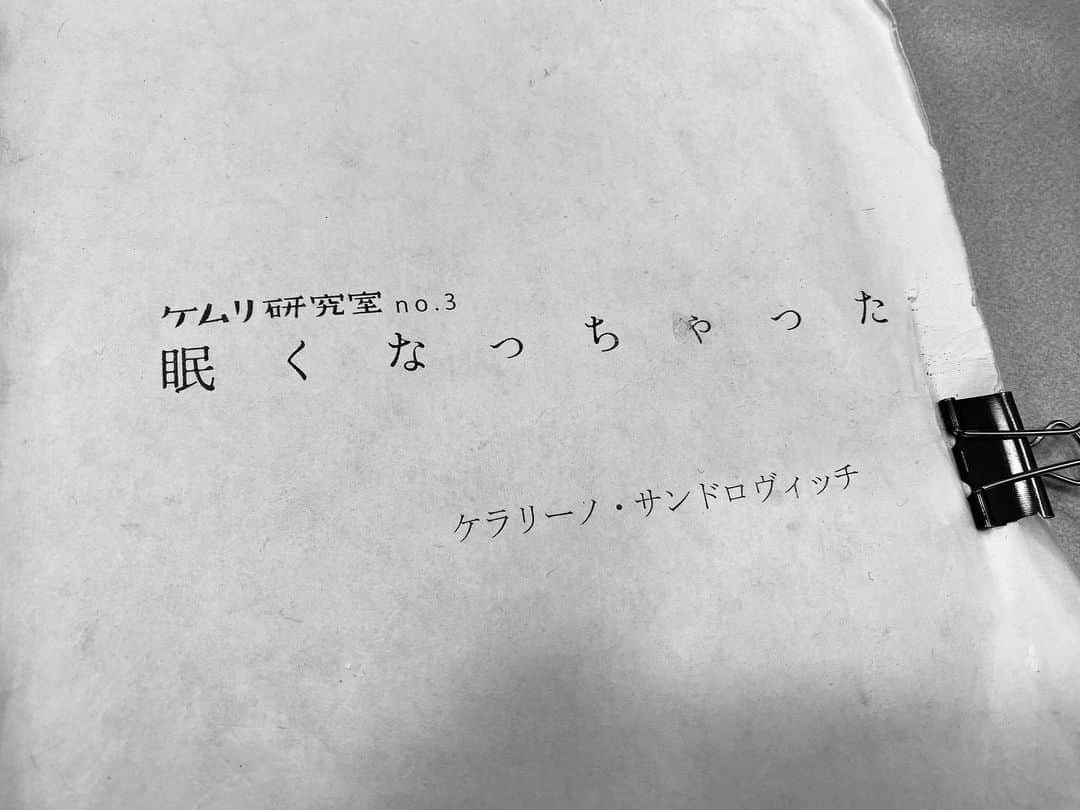 ケムリ研究室 no.3
眠くなっちゃった
ケラリーノ・サンドロヴィッチ